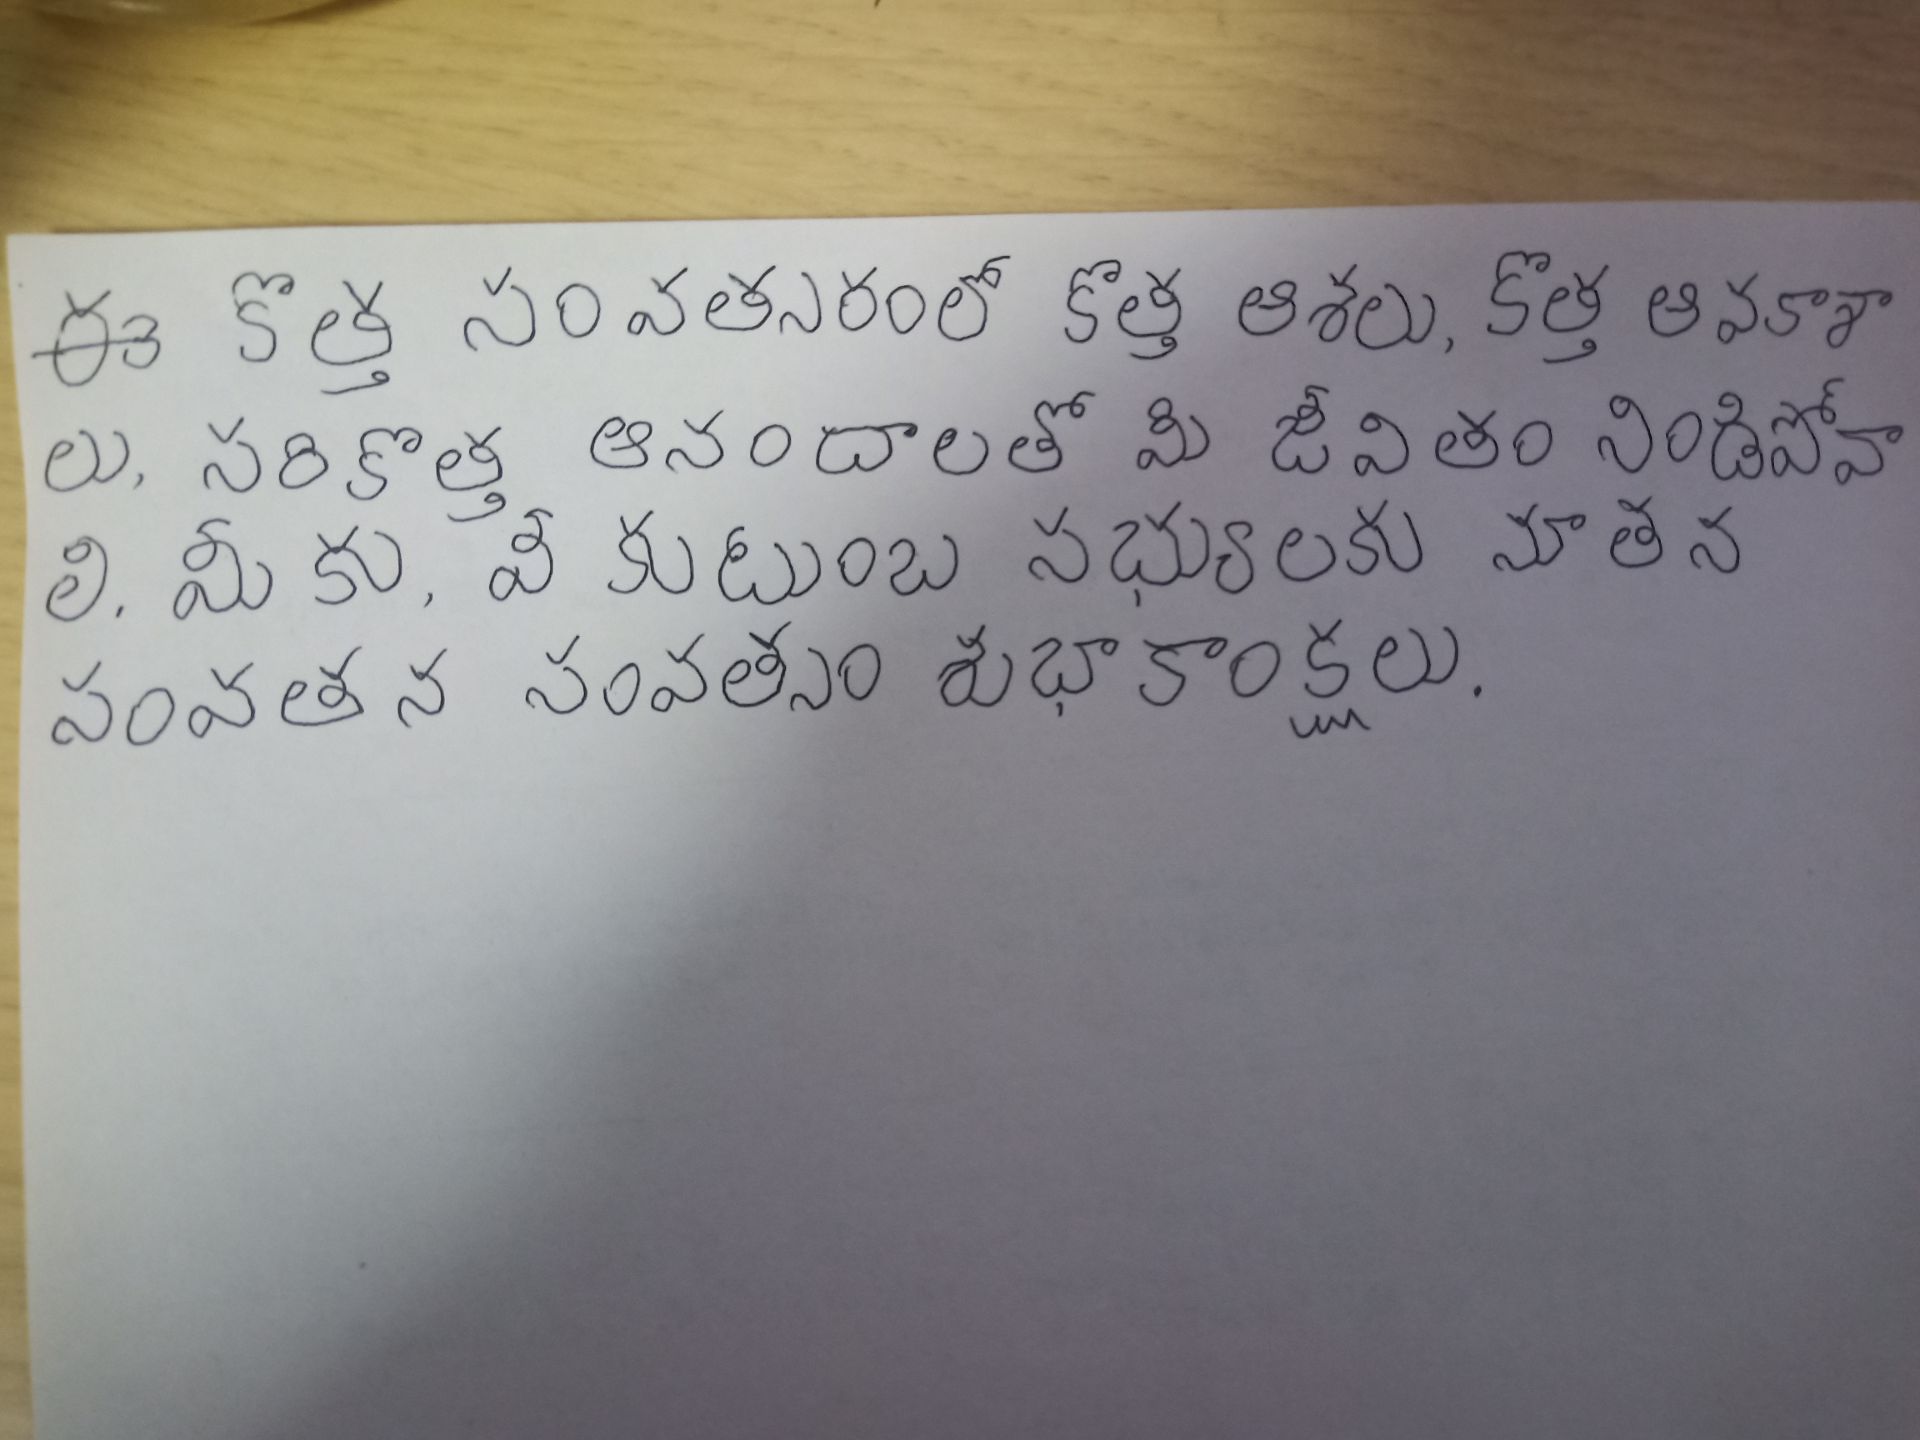 ఈ కొత్త సంవతసరంలో కొత్త ఆశలు, కొత్త ఆవకాశా
లు, సరికొత్త ఆనందాలతో మి జీవితం నిండిపోవా
లి. మీకు, వీ కుటుంబ సభ్యులకు నూతన
సంవతన సంవత్సం శుభాకాంక్షలు.